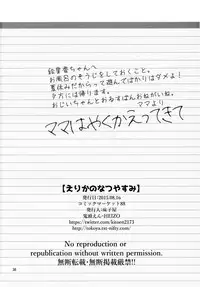 絵里香ちゃんへ
お風呂のそうじをしておくこと。
夏休みだからって遊んでばかりはダメよ！
夕方には帰ります。
おじいちゃんとおるすばんおねがいね。
ママより
ママはやくかえってきて
【えりかのなつやすみ】
発行日/2015.08.16
コミックマーケット88
鬼頭えん・HEIZO
https://twitter.com/kitoen2173
No reproduction or
republication without written permission.
無断転載・無断掲載厳禁!!